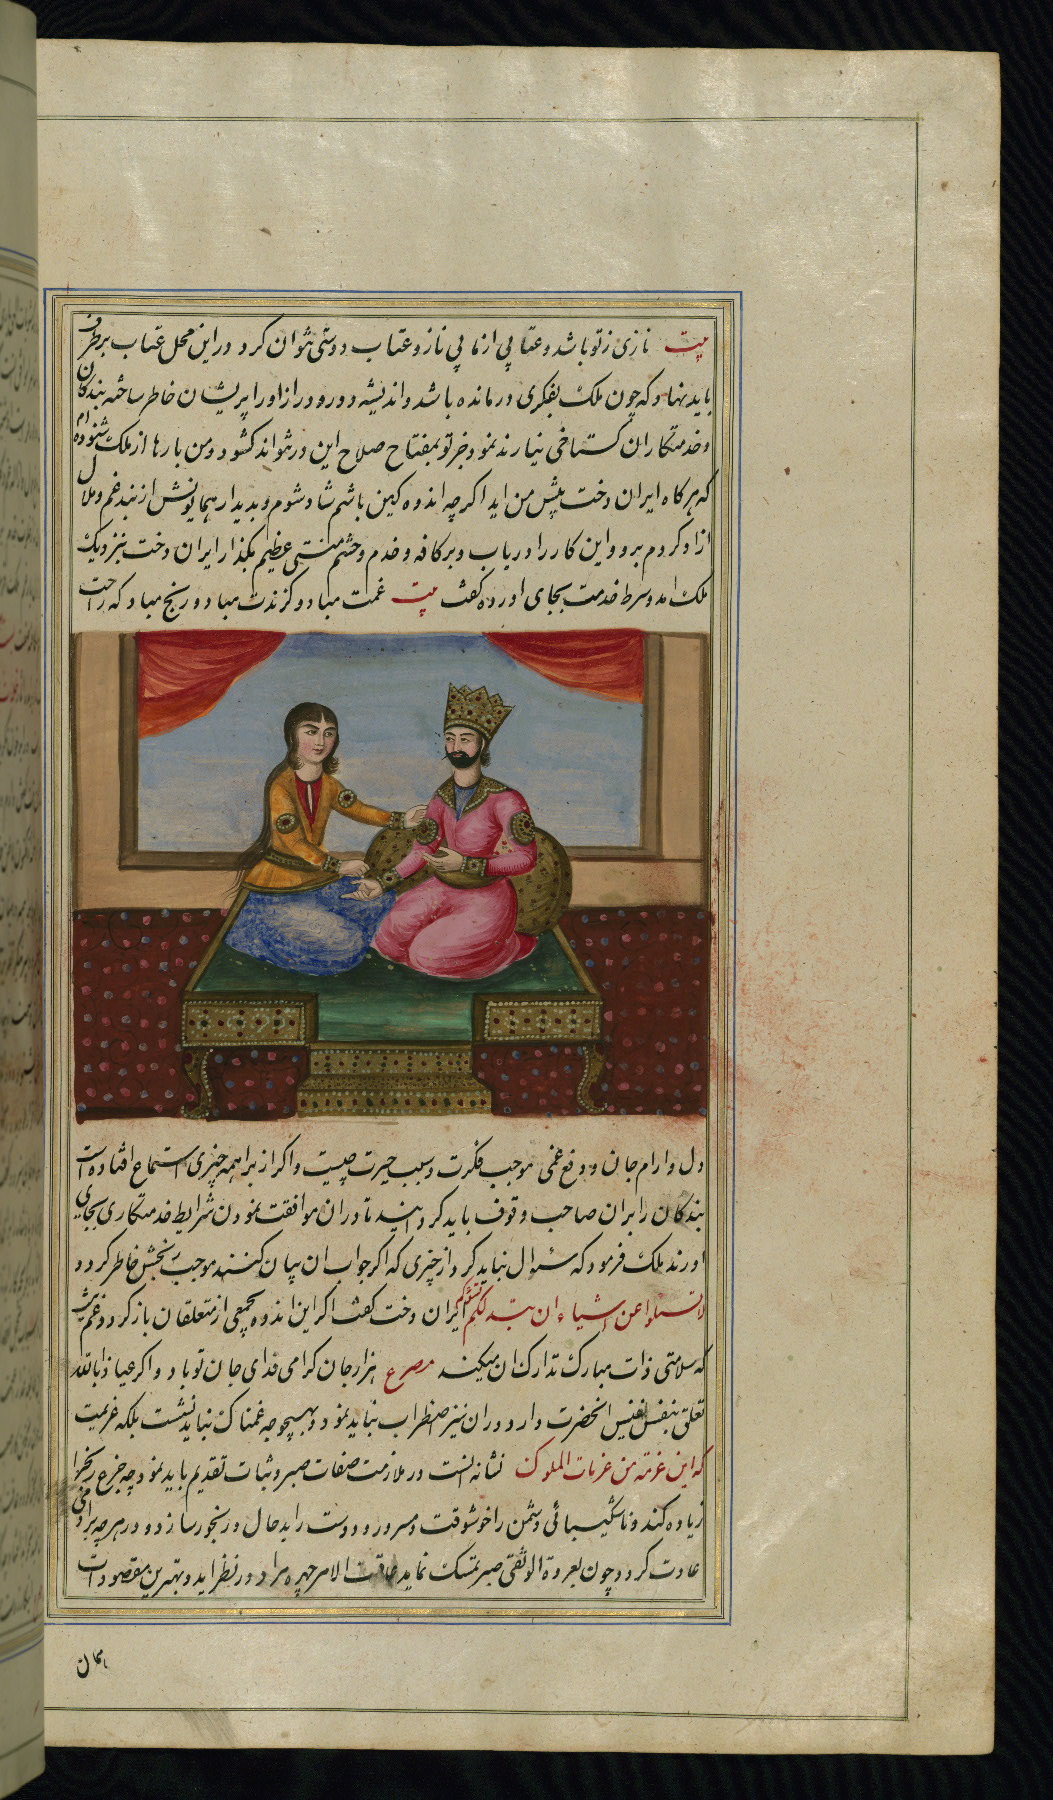 بیت نازی ز تو باشد و عتابی از ما بی ناز و عتاب دوستی نتوان کرد و در این محل عتاب بر طرف
باید نهاد که چون ملک بفکری درمانده باشد و اندیشه دور و دراز او را پریشان خاطر ساخته بندکان
و خدمتکاران کستاخی نیارند نمود و جز تو بمفتاح صلاح این در نتواند کشود و من بارها از ملک شنوده ام
که هر کاه ایران دخت پیش من اید اکر چه اندوه کین باشم شاد شوم و بدیدار همایونش از بند غم و ملال
ازاد کردم برو و این کار را دریاب و بر کافه خدم و حشم منتی عظیم بکذار ایران دخت بنزدیک
ملک امد و شرط خدمت بجای اورده کفت بیت غمت مباد و کزندت مباد و رنج مباد که راحت
دل و ارام جان و دفع غمی موجب فکرت و سبب حیرت چیست و اکر از براهمه چیزی استماع افتاده است
بندکان را بران صاحب وقوف باید کردانید تا دران موافقت نمودن شرایط خدمتکاری بجای
اورند ملک فرمود که سئوال نباید کرد از چیزی که اکر جواب ان بیان کنند موجب رنجش خاطر کردد
لا تسئلوا عن اشیاء ان تبد لکم تسؤکم ایران دخت کفت اکر این اندوه بجمعی از متعلقان باز کردد غم نیست
که سلامتی ذات مبارک تدارک ان میکند مصرع هزار جان کرامی فدای جان تو باد و اکر عیاذا بالله
تعلق بنفس نفیس انحضرت دارد دران نیز اضطراب نباید نمود و بهیچوجه غمناک نباید نشست بلکه عزیمت
که این عزمة من عزمات الملوک نشانه انست در ملازمت صفات صبر و ثبات تقدیم باید نمود چه جزع رنج را
زیاده کند و ناشکیبائی دشمن را خوشوقت و مسرور و دوست را بدحال و رنجور سازد و در هر چه برادمی
عادت کردد چون بعروة الوثقی صبر تمسک نماید عاقبت الامر چهره مراد در نظر اید و بهترین مقصود ات